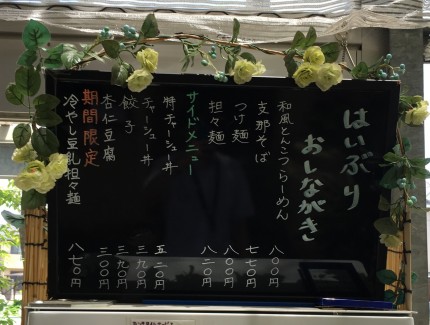 はいぶり
おしながき
和風とんこつらーめん 八〇〇円
支那そば 七七〇円
つけ麺 八〇〇円
担々麺 八二〇円
サイドメニュー
特チャーシュー丼 五二〇円
チャーシュー丼 三九〇円
餃子 三九〇円
杏仁豆腐 三〇〇円
期間限定
冷やし豆乳担々麺 八七〇円